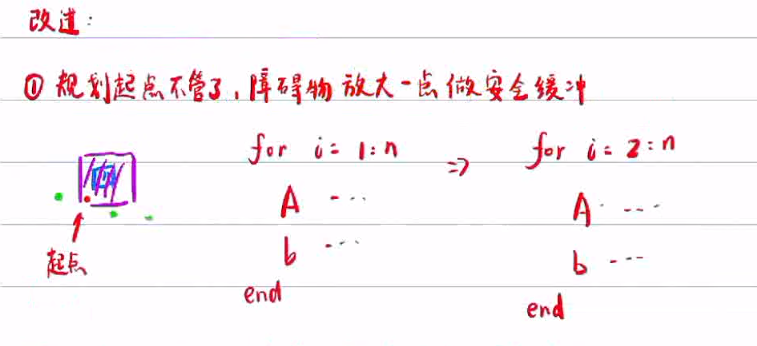 改进:
① 规划起点不管了, 障碍物放大一点做安全缓冲
for i = 1:n
A ...
b ...
end
⇒
for i = 2:n
A ...
b ...
end
起点